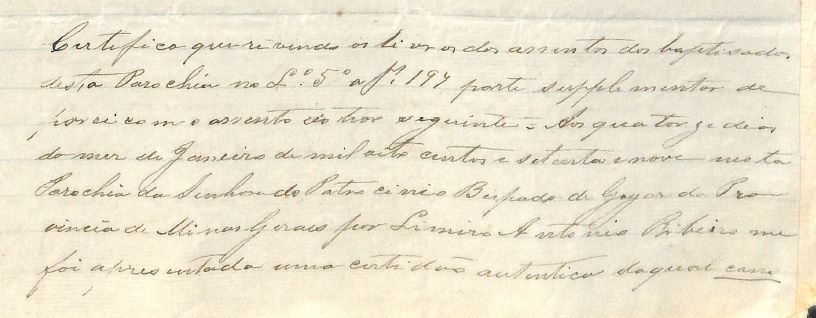 Certifico que revendo os livros dos assentos dos baptisados
desta Parochia no L.º 5º a fs. 197 parte supplementar de
parei com o assento do theor seguinte = Aos quatorze dias
do mez de Janeiro de mil oito centos e setenta e nove nesta
Parochia da Senhora do Patrocinio Bispado de Goyaz da Pro
vincia de Minas Geraes por Limirio Antonio Ribeiro me
foi apresentada uma certidão autentica da qual cons